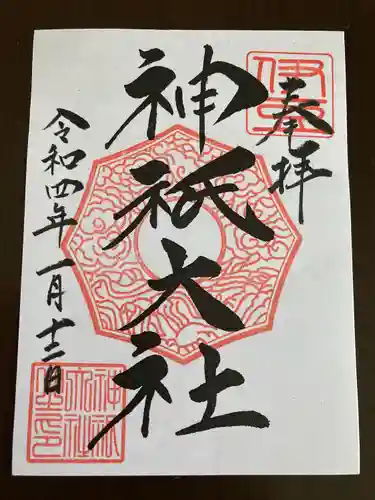 奉拝
伊豆
神祇大社
令和四年一月十二日
神祇大社之印